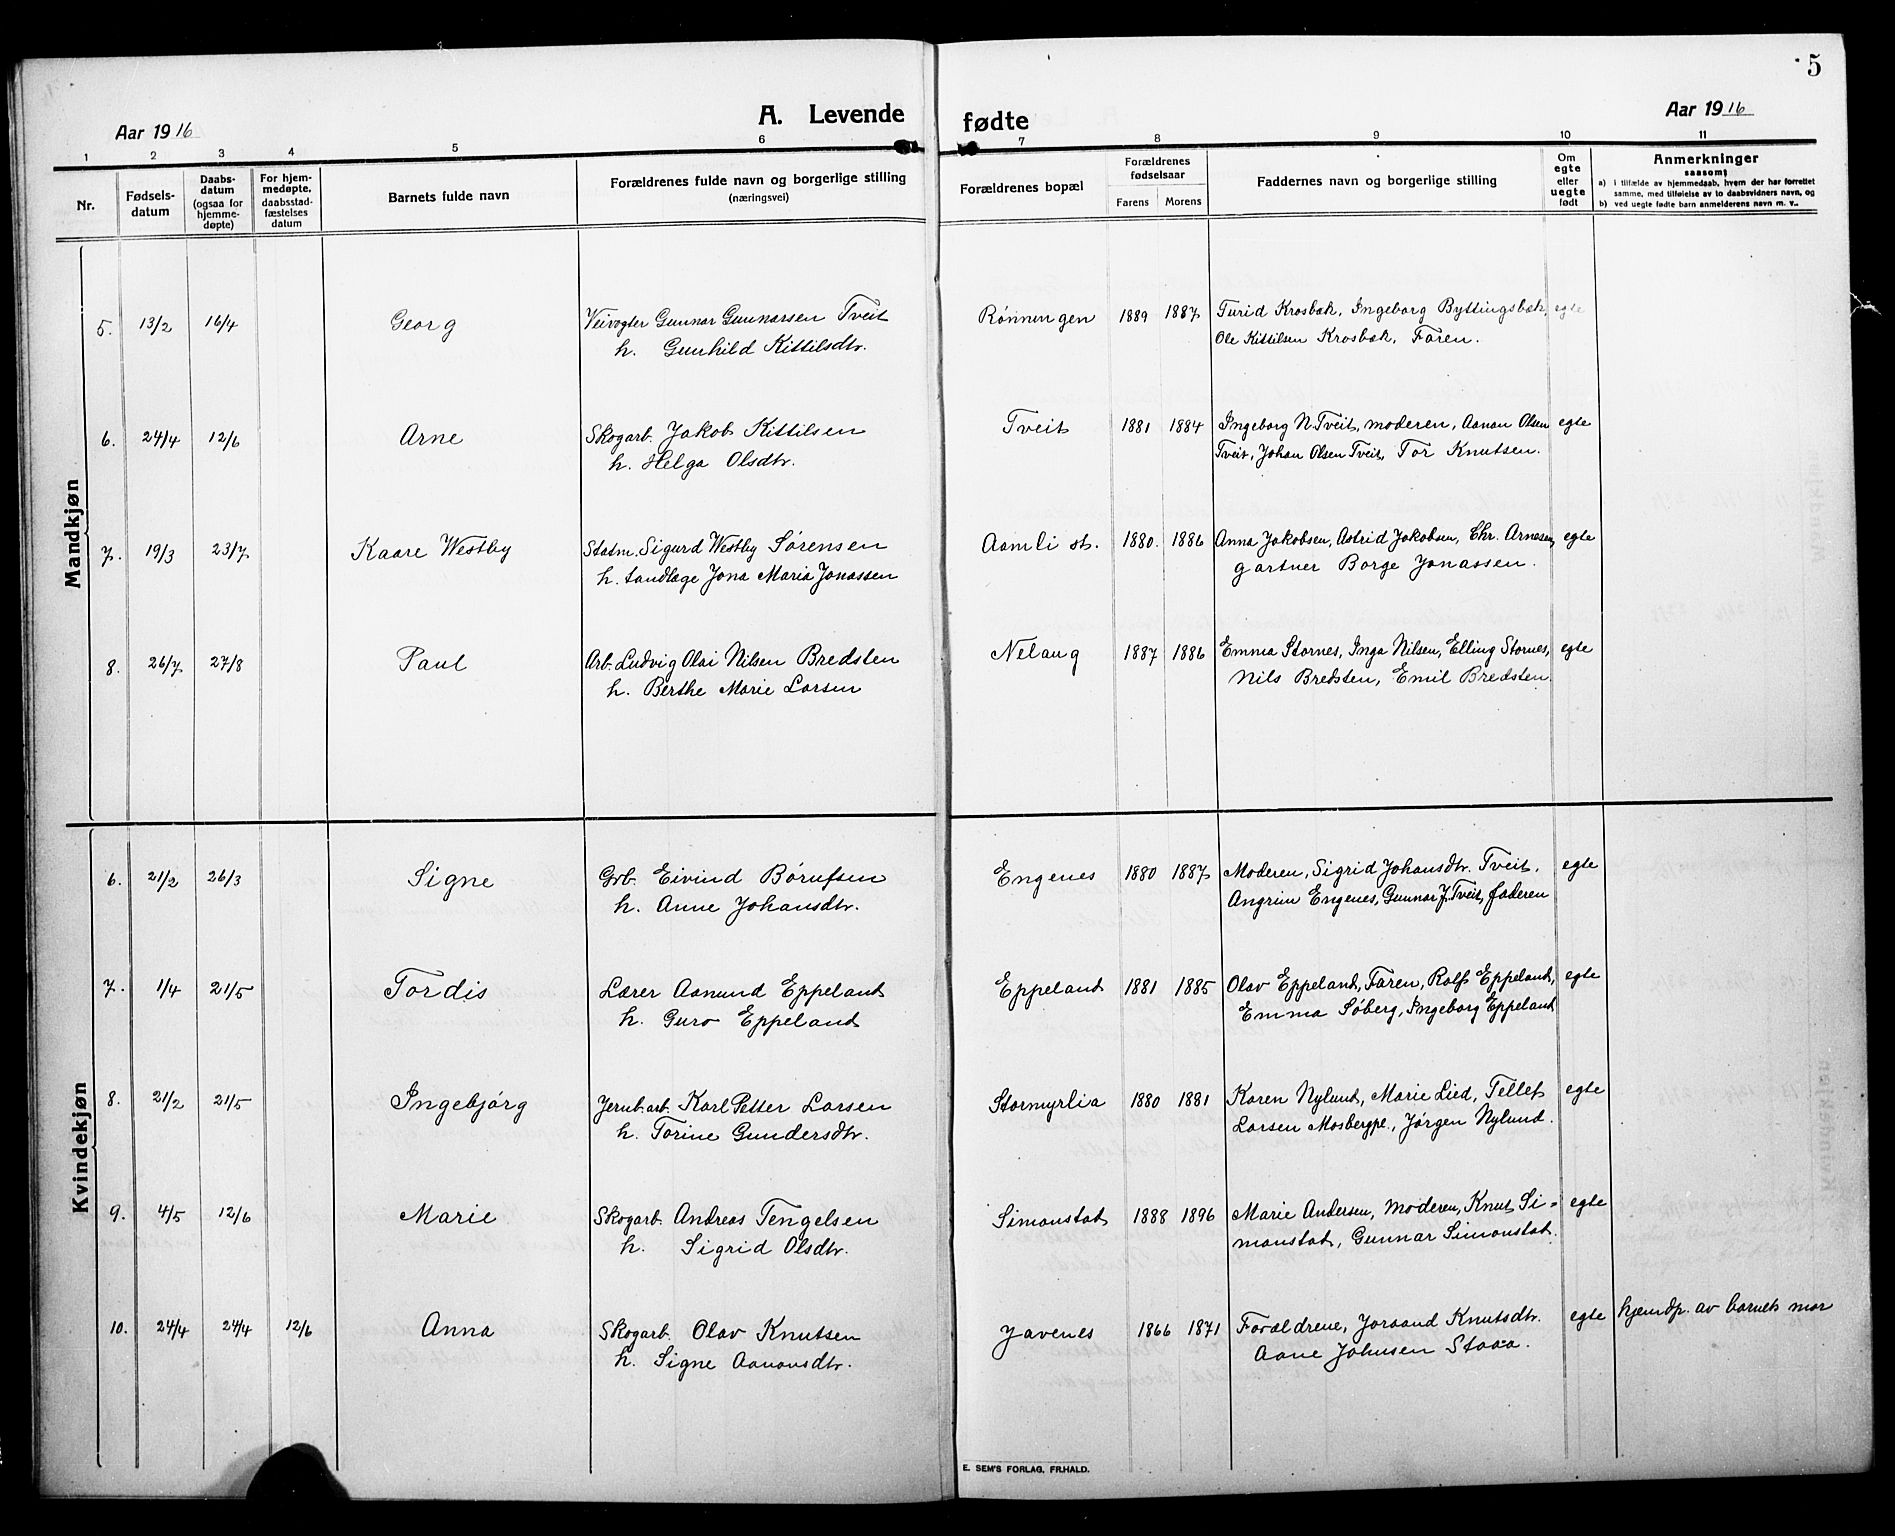 5
A. Levende fødte
Aar 1916
Aar 1916
1 2 3 4 5 6 7 8 9 10 11
Nr.
Fødsels-
datum
Daabs-
datum
(ogsaa for
hjemme-
døpte)
For hjem-
medøpte,
daabsstad-
fæstelses
datum
Barnets fulde navn
Forældrenes fulde navn og borgerlige stilling
(næringsvei)
Forældrenes bopæl
Forældrenes
fødselsaar
Farens Morens
Faddernes navn og borgerlige stilling
Om
egte
eller
uegte
født
Anmerkninger
saasom:
a) i tilfælde av hjemmedaab, hvem der har forrettet
samme, med tilføielse av to daabsvidners navn, og
b) ved uegte fødte barn anmelderens navn m. v..
Mandkjøn
5. 13/2 16/4 Georg Veivogter Gunnar Gunnarsen Tveit Rönningen 1889 1887 Turid Krosbæk, Ingeborg Byttingsbæk, egte
h. Gunhild Kittilsdtr. Ole Kittilsen Krosbæk, Faren.
6. 24/4 12/6 Arne Skogarb. Jakob Kittilsen Tveit 1881 1884 Ingeborg N. Tveit, moderen, Aanon Olsen egte
h. Helga Olsdtr. Tveit, Johan Olsen Tveit, Tor Knutsen.
7. 19/3 23/7 Kaare Westby Statm. Sigurd Westby Sørensen Aamli st. 1880. 1886 Anna Jakobsen, Astrid Jakobsen, Chr. Arnesen, egte
h. tandlæge Jona Maria Jonassen gartner Borge Jonassen.
8. 26/7 27/8 Paul Arb. Ludvig Olai Nilsen Bredsten Nelaug 1887 1886 Emma Stornes, Inga Nilsen, Elling Stornes, egte
h. Berthe Marie Larsen Nils Bredsten, Emil Bredsten.
Kvindekjøn
6. 21/2 26/3 Signe Grb. Eivind Børufsen Engenes 1880 1887 Moderen, Sigrid Johansdtr. Tveit, egte
h. Anne Johansdtr. Angrim Engenes, Gunnar J. Tveit, faderen
7. 1/4 21/5 Tordis Lærer Aanund Eppeland Eppeland 1881 1885 Olav Eppeland, Faren, Rolf Eppeland, egte
h. Guro Eppeland Emma Søberg, Ingeborg Eppeland
8. 21/2 21/5 Ingebjørg Jernb. arb. Karl Petter Larsen Stormyrlia 1880 1881 Karen Nylund, Marie Lied, Tellef egte
h. Torine Gundersdtr. Larsen Mosbergpl., Jørgen Nylund.
9. 4/5 12/6 Marie Skogarb. Andreas Tengelsen Simonstad 1888 1896 Marie Andersen, Moderen, Knut Si- egte
h. Sigrid Olsdtr. monstad, Gunnar Simonstad.
10. 24/4 24/4 12/6 Anna Skogarb. Olav Knutsen Javenes 1866 1871 Forældrene, Joraand Knutsdtr. egte hjemdp. av barnets mor
h. Signe Aanonsdtr. Aane Johnsen Staaa.
E. SEM'S FORLAG, FR.HALD.